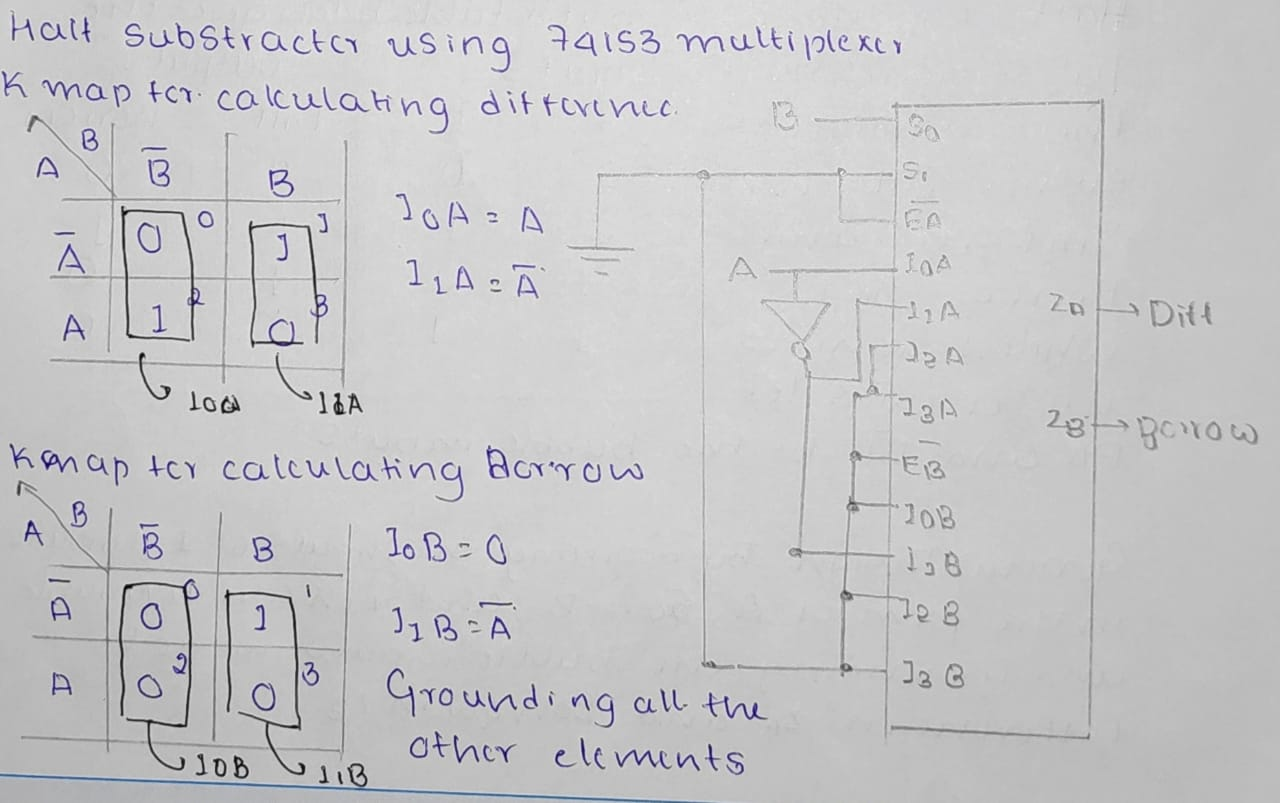 Half Substracter using 74153 multiplexer
K map for calculating difference.
B
A
B̅
B
A̅
0
0
1
1
A
1
2
0
3
I0A
I1A
I0A = A
I1A = A̅
K map for calculating Borrow
B
A
B̅
B
A̅
0
0
1
1
A
0
2
0
3
I0B
I1B
I0B = 0
I1B = A̅
Grounding all the
other elements
B
S0
S1
E̅A̅
A
I0A
I1A
I2A
I3A
E̅B
I0B
I1B
I2B
I3B
ZA
Diff
ZB
Borrow